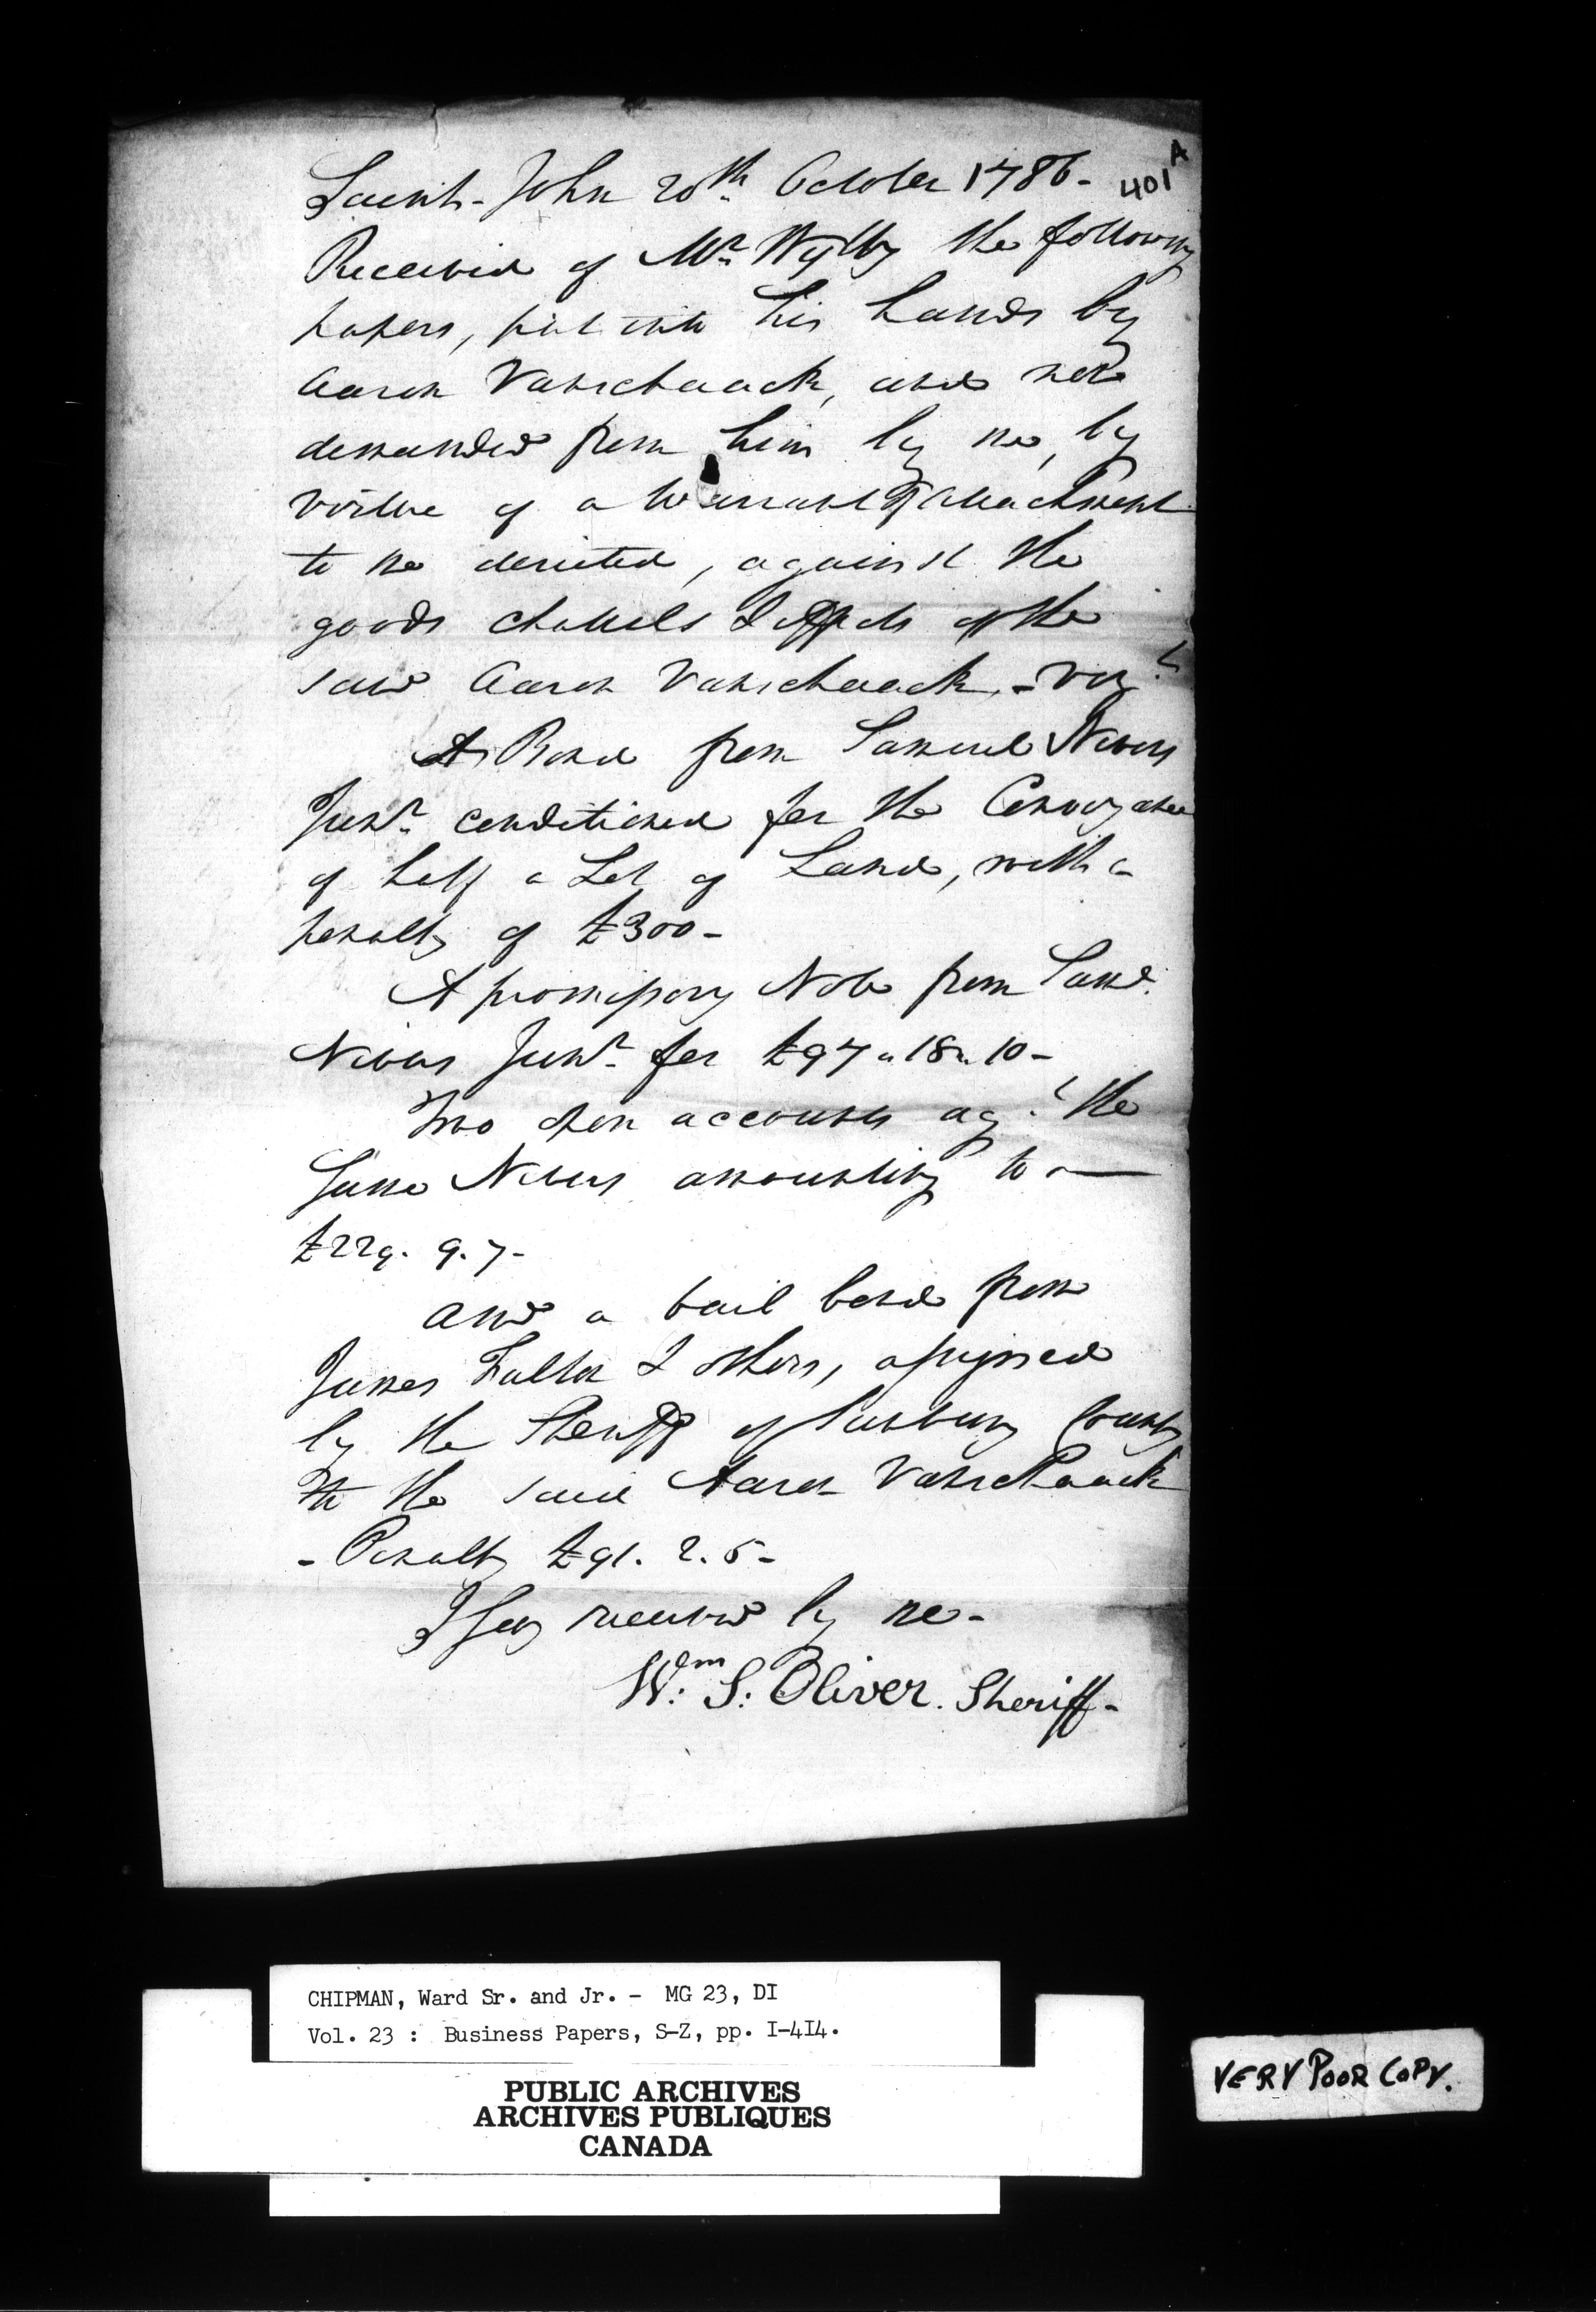 401A
Saint-John 20th October 1786-
Received of Mr. Wylly the following
papers, put into his hands by
Aaron Vanschaack, and now
demanded from him by me, by
virtue of a Warrant of Attachment
to me directed, against the
goods chattels & effects of the
said Aaron Vanschaack, - vizt.
A Bond from Samuel Nevers
Junr. conditioned for the Conveyance
of half a Lot of Land, with a
penalty of £300-
A promissory Note from Saml.
Nevers Junr. for £97 " 18 " 10-
Two open accounts agt. the
same Nevers amounting to
£229. 9. 7-
and a bail bond from
James Fulton & others, assigned
by the Sheriff of Sunbury County
to the said Aaron Vanschaack
- Penalty £91. 2. 5-
I say received by me-
Wm: S: Oliver. Sheriff-
CHIPMAN, Ward Sr. and Jr. - MG 23, DI
Vol. 23 : Business Papers, S-Z, pp. I-4I4.
PUBLIC ARCHIVES
ARCHIVES PUBLIQUES
CANADA
VERY POOR COPY.